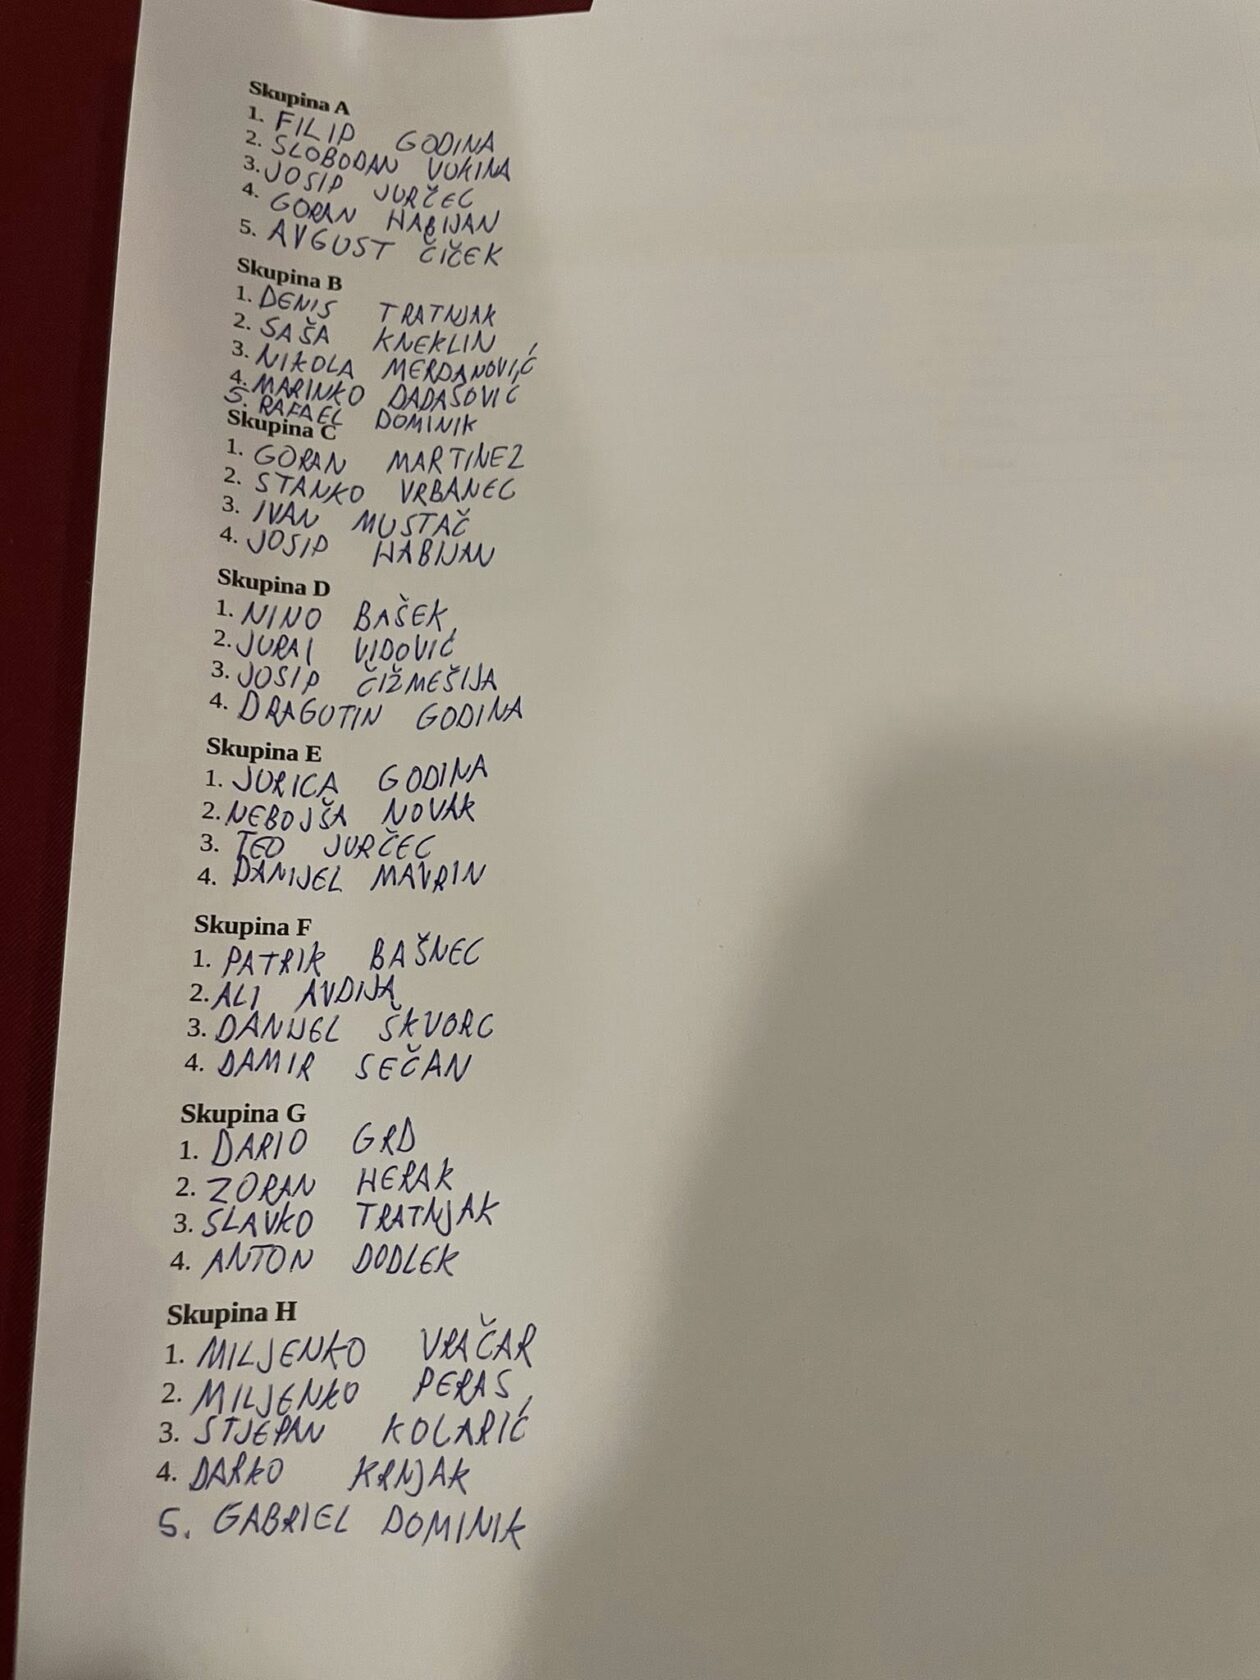 Skupina A
1. FILIP GODINA
2. SLOBODAN VUKINA
3. JOSIP JURČEC
4. GORAN HABIJAN
5. AVGUST ČIČEK
Skupina B
1. DENIS TRATNJAK
2. SAŠA KNEKLIN
3. NIKOLA MERDANOVIĆ
4. MARINKO DADASOVIĆ
5. RAFAEL DOMINIK
Skupina C
1. GORAN MARTINEZ
2. STANKO VRBANEC
3. IVAN MUSTAČ
4. JOSIP HABIJAN
Skupina D
1. NINO BAŠEK
2. JURAJ VIDOVIĆ
3. JOSIP ČIŽMEŠIJA
4. DRAGUTIN GODINA
Skupina E
1. JURICA GODINA
2. NEBOJŠA NOVAK
3. TEO JURČEC
4. DANIJEL MAVRIN
Skupina F
1. PATRIK BAŠNEC
2. ALI AVDIJA
3. DANIJEL ŠKVORC
4. DAMIR SEČAN
Skupina G
1. DARIO GRD
2. ZORAN HERAK
3. SLAVKO TRATNJAK
4. ANTON DODLEK
Skupina H
1. MILJENKO VRAČAR
2. MILJENKO PERAS
3. STJEPAN KOLARIĆ
4. DARKO KRNJAK
5. GABRIEL DOMINIK